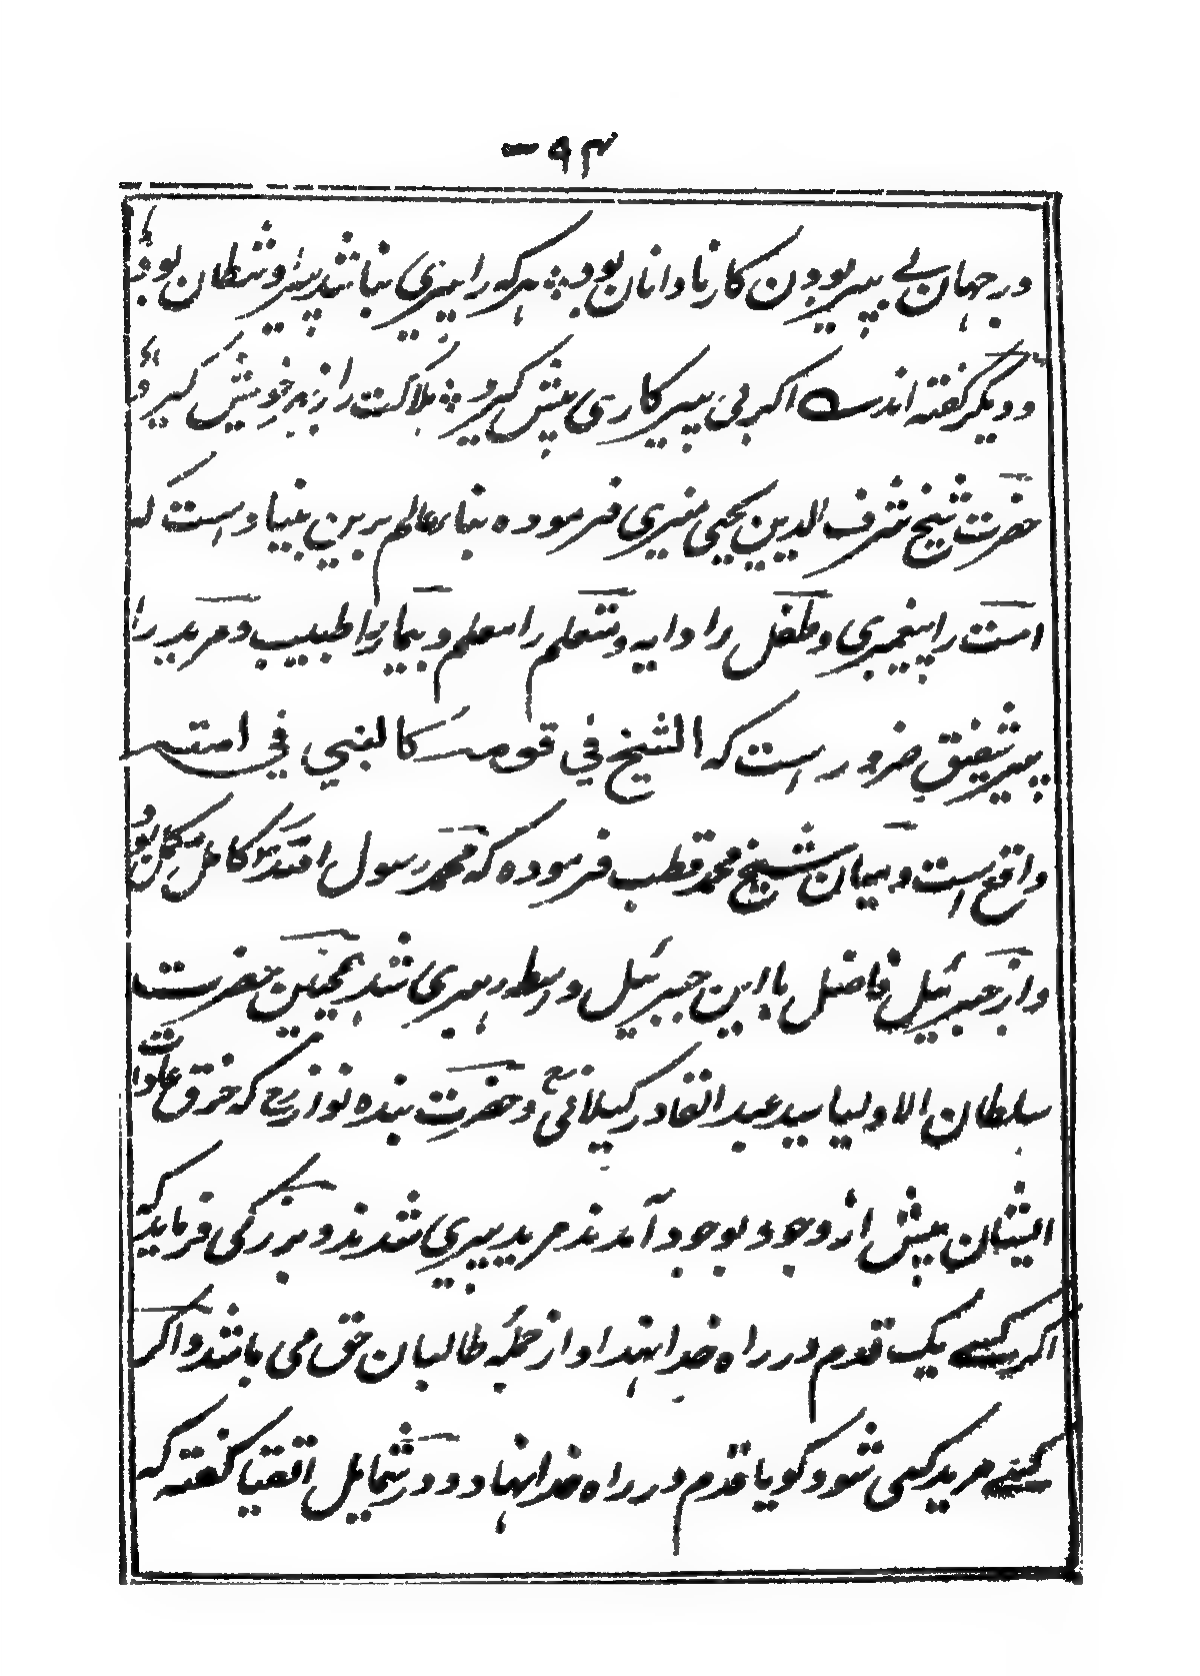 ۹۴ -
در جهان بے پیر بودن کار نادانان بود ؞ هرکه را پیری نباشد پیر او شیطان بود
و دیگر گفته اند اگر بی پیر کاری پیش گیرد ؞ هلاکت را ز بهر خویش گیرد
حضرت شیخ شرف الدین یحیی منیری فرموده بناء عالم برین بنیاد است که
امت را پیغمبری و طفل را دایه و متعلم را معلم و بیمار را طبیب و مرید را
پیر شفیق ضرور است که الشیخ فی قومه کالنبی فی امته
واقع است و میان شیخ محمد قطب فرموده که محمد رسول الله کامل مکمل بود
و از جبرئیل فاضل با این جبرئیل واسطه رهبری شد همچنین حضرت
سلطان الاولیا سید عبد القادر گیلانی رح و حضرت بنده نواز رح که خرق عادات
ایشان پیش از وجود بوجود آمدند مرید پیری شدند و بزرگی فرماید که
اگر کسے یک قدم در راه خدا نهد او از جمله طالبان حق می باشد و اگر
کسے مرید کسی شود گویا قدم در راه خدا نهاد و در شمایل اتقیا گفته که